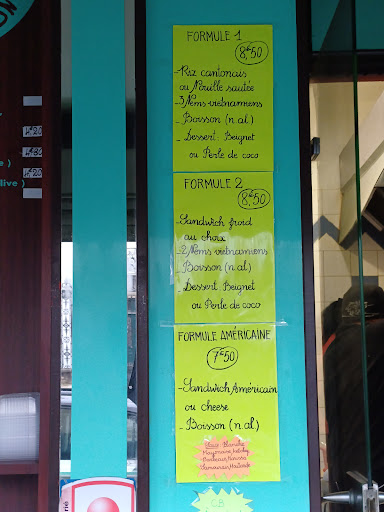 ON
FORMULE 1
8,€50
-Riz cantonais
ou Nouille sautée
-3 Nems vietnamiens
- Boisson (n al)
- Dessert: Beignet
ou Perle de coco
FORMULE 2
8,€50
-Sandwich froid
au choix
-2 Nems vietnamiens
- Boisson (n al)
- Dessert Beignet
ou Perle de coco
FORMULE AMÉRICAINE
7€50
-Sandwich Américain
ou cheese
- Boisson (n al)
Sauce Blanche
Mayonnaise, ketchup
Barbecue, Harissa
Samouraï, Moutarde
CB
4€20
4€20
ive )